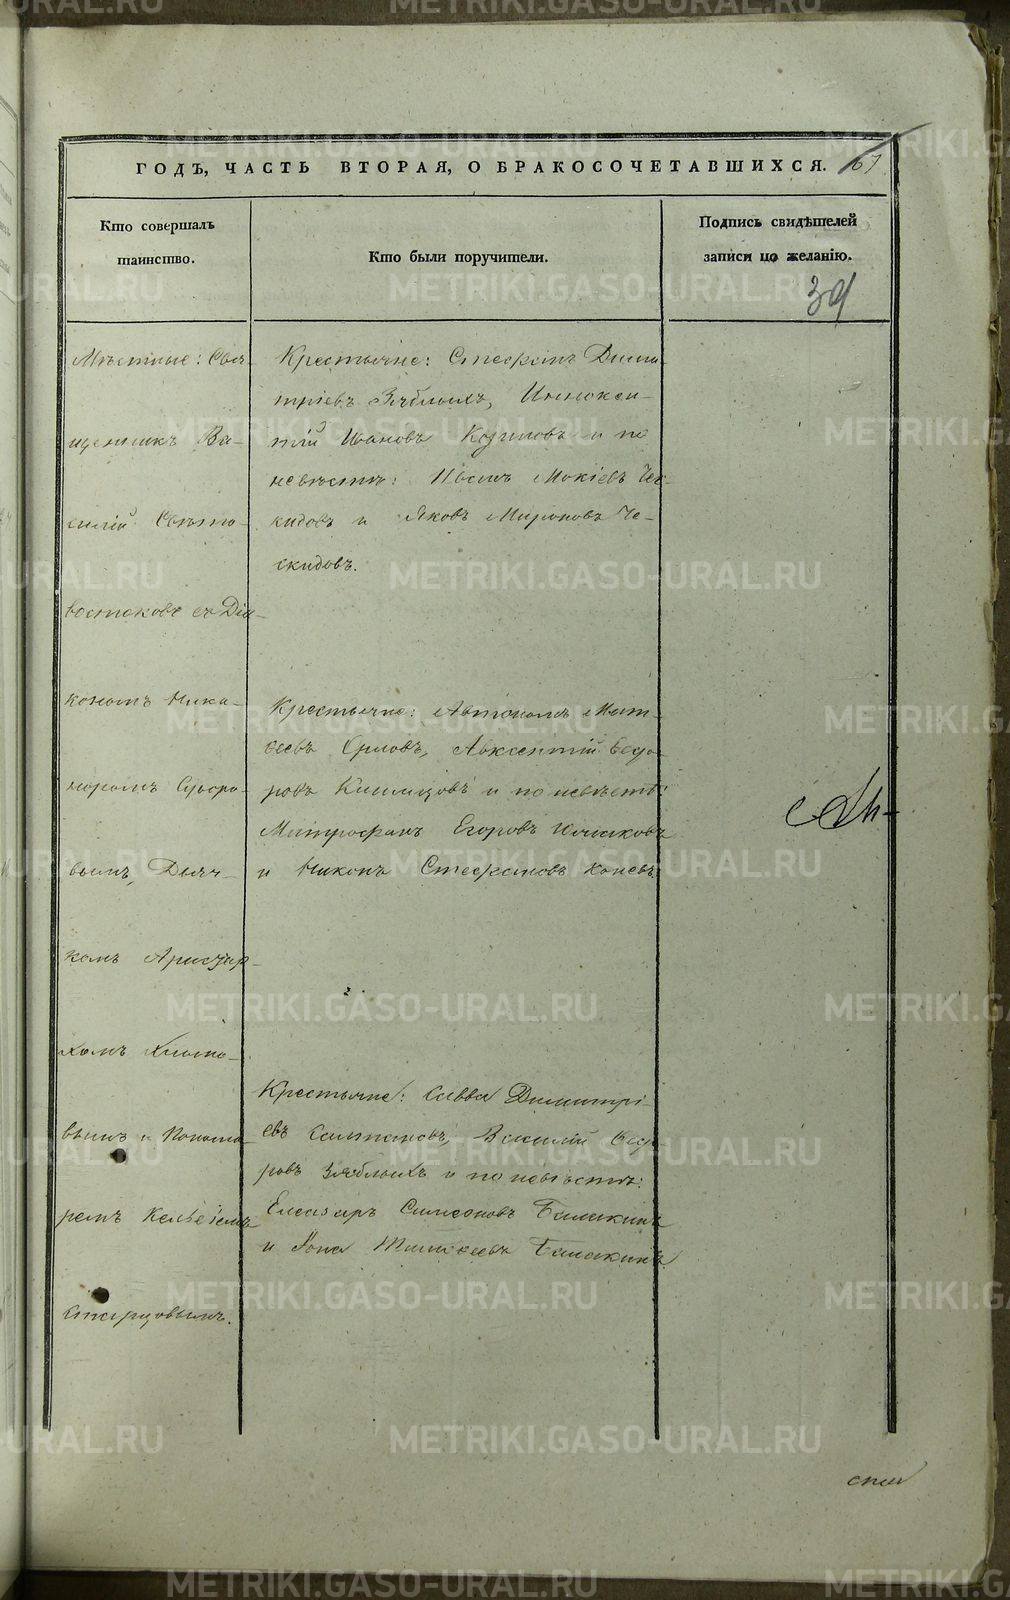 ГОДЪ, ЧАСТЬ ВТОРАЯ, О БРАКОСОЧЕТАВШИХСЯ.
67
Кто совершалъ
таинство.
Кто были поручители.
Подпись свидѣтелей
записи по желанію.
Мѣстные: Свя
щенникъ Ва-
силій Свѣто-
востоковъ съ Діа-
кономъ Ника-
норомъ
вымъ, Дьяч-
комъ Аристар-
хомъ
вымъ и Понома-
ремъ
Старцовымъ.
Крестьяне: Стефанъ Дими-
тріевъ Зяблыхъ, Иннокен-
тій Ивановъ и по
невѣстѣ: Мокіевъ Че-
скидовъ и Яковъ Мироновъ Че-
скидовъ.
Крестьяне: Автономъ Мат-
веевъ Орловъ, Авксентій Ѳедо-
ровъ и по невѣстѣ:
Митрофанъ Егоровъ
и Никонъ Стефановъ Коневъ.
Крестьяне: Савва Димитрі-
евъ Василій Ѳедо-
ровъ Зяблыхъ и по невѣстѣ:
Елеазаръ Симеоновъ Балакинъ
и Іона Балакинъ
METRIKI.GASO-URAL.RU